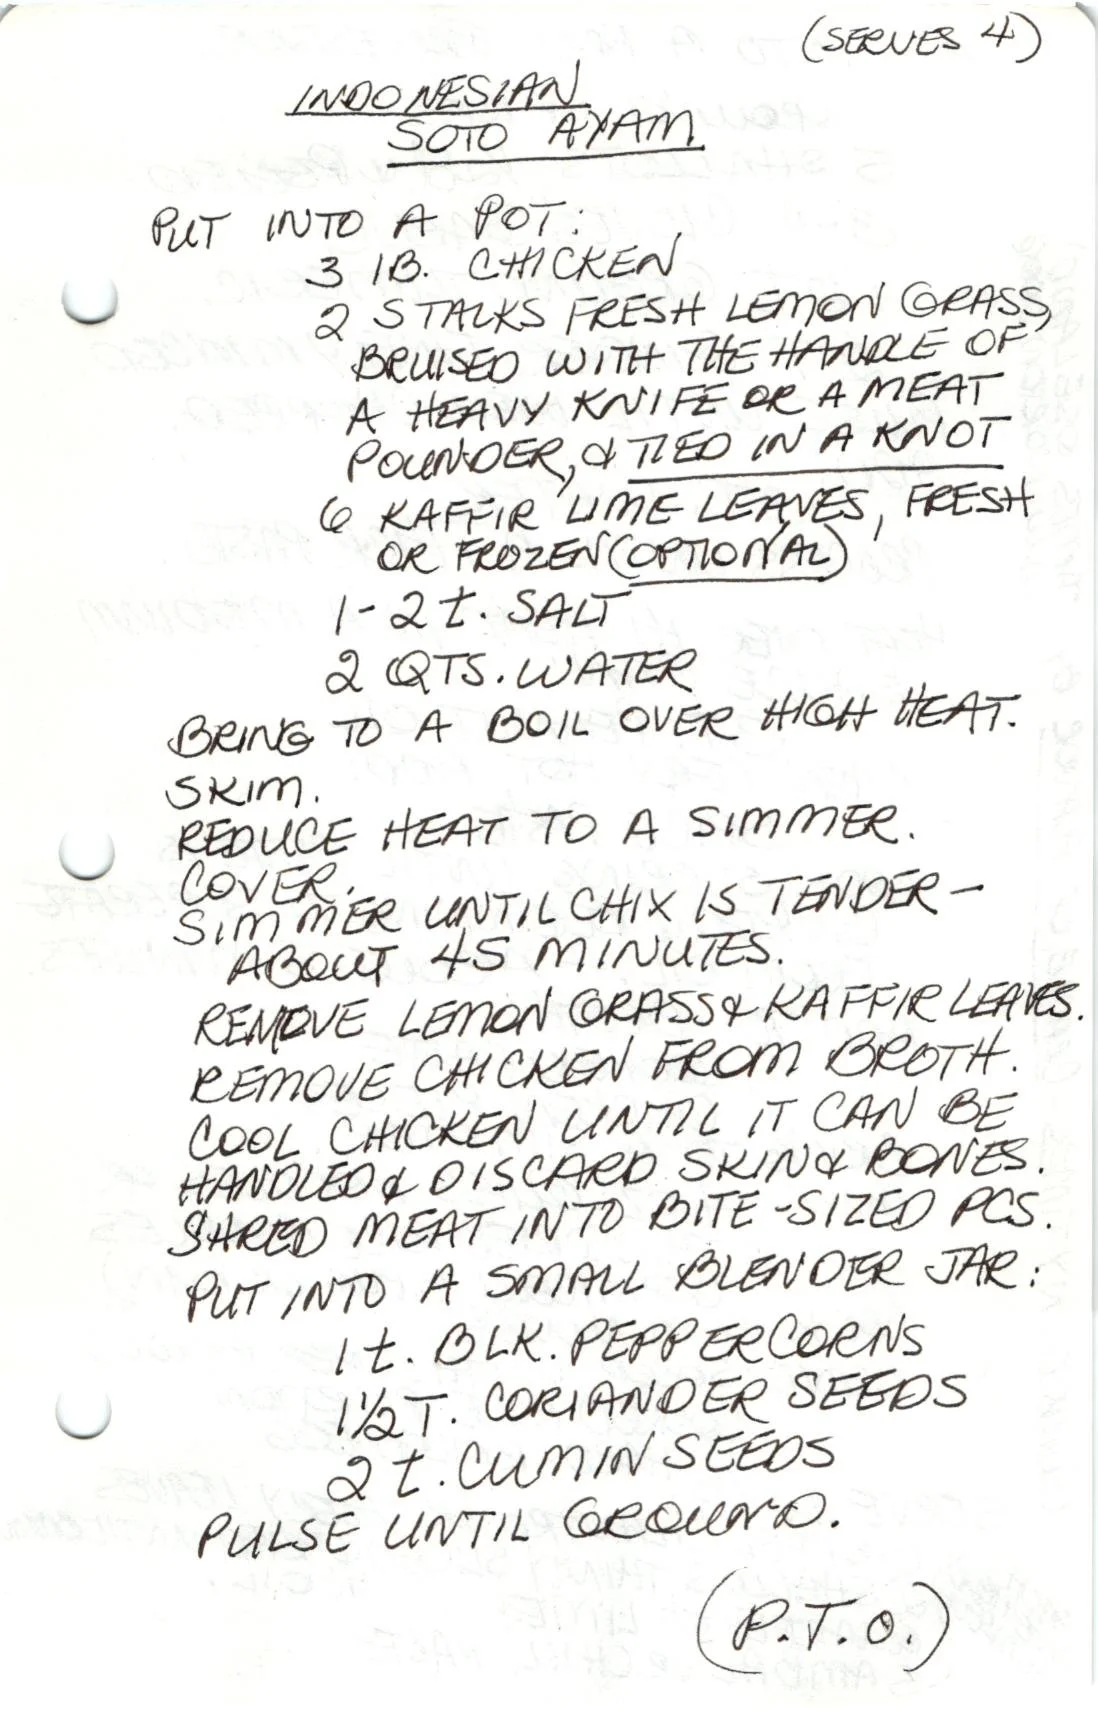 (SERVES 4)
INDONESIAN
SOTO AYAM
PUT INTO A POT:
3 lB. CHICKEN
2 STALKS FRESH LEMON GRASS,
BRUISED WITH THE HANDLE OF
A HEAVY KNIFE OR A MEAT
POUNDER, & TIED IN A KNOT
6 KAFFIR LIME LEAVES, FRESH
OR FROZEN (OPTIONAL)
1-2 t. SALT
2 QTS. WATER
BRING TO A BOIL OVER HIGH HEAT.
SKIM.
REDUCE HEAT TO A SIMMER.
COVER.
SIMMER UNTIL CHIX IS TENDER -
ABOUT 45 MINUTES.
REMOVE LEMON GRASS & KAFFIR LEAVES.
REMOVE CHICKEN FROM BROTH.
COOL CHICKEN UNTIL IT CAN BE
HANDLED & DISCARD SKIN & BONES.
SHRED MEAT INTO BITE-SIZED PCS.
PUT INTO A SMALL BLENDER JAR:
1 t. BLK. PEPPERCORNS
1 1/2 T. CORIANDER SEEDS
2 t. CUMIN SEEDS
PULSE UNTIL GROUND.
(P.T.O.)